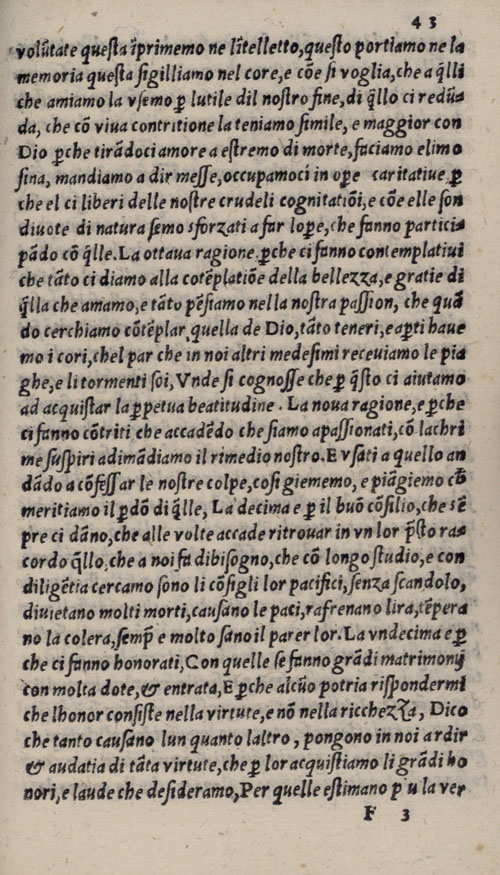 43
volũtate questa ĩprimemo ne lĩtelletto,questo portiamo ne la
memoria questa sigilliamo nel core,e cõe si voglia,che a q̃lli
che amiamo la vsemo ꝑ lutile dil nostro fine,di q̃llo ci redũ⸗
da, che cõ viua contritione la teniamo simile, e maggior con
Dio ꝑche tirãdoci amore a estremo di morte,faciamo elimo
sina, mandiamo a dir messe,occupamoci in oꝑe caritatiue ꝑ
che el ci liberi delle nostre crudeli cognitatiõi,e cõe elle son
diuote di natura semo sforzati a far loꝑe,che fanno partici⸗
pãdo cõ q̃lle.La ottaua ragione ꝑche ci fanno contemplatiui
che tãto ci diamo alla cotẽplatiõe della bellezza,e gratie di
q̃lla che amamo,e tãto pẽsiamo nella nostra passion, che quã
do cerchiamo cõtẽplar quella de Dio,tãto teneri,e aꝑti haue
mo i cori,chel par che in noi altri medesimi receuiamo le pia
ghe,e li tormenti soi,Vnde si cognosse che ꝑ q̃sto ci aiutamo
ad acquistar la ꝑpetua beatitudine . La noua ragione,e ꝑche
ci fanno cõtriti che accadẽdo che siamo apassionati,cõ lachri
me suspiri adimãdiamo il rimedio nostro.E vsati a quello an
dãdo a cõfessar le nostre colpe,cosi gememo,e piãgiemo cõ
meritiamo il ꝑdõ di q̃lle, La decima e ꝑ il buõ cõsilio,che sẽ
pre ci dãno,che alle volte accade ritrouar in vn lor p̃sto ra⸗
cordo q̃llo.che a noi fa dibisogno,che cõ longo studio,e con
diligẽtia cercamo sono li cõsigli lor pacifici,senza scandolo,
diuietano molti morti,causano le paci,rafrenano lira,tẽpera
no la colera,semp̃ e molto sano il parer lor.La vndecima e ꝑ
che ci fanno honorati,Con quelle se fanno grãdi matrimonij
con molta dote,& entrata,E ꝑche alcũo potria rispondermi
che lhonor consiste nella virtute,e nõ nella ricchezza, Dico
che tanto causano lun quanto laltro , pongono in noi ardir
& audatia di tãta virtute,che ꝑ lor acquistiamo li grãdi ho
nori,e laude che desideramo,Per quelle estimano p u la ver
F 3